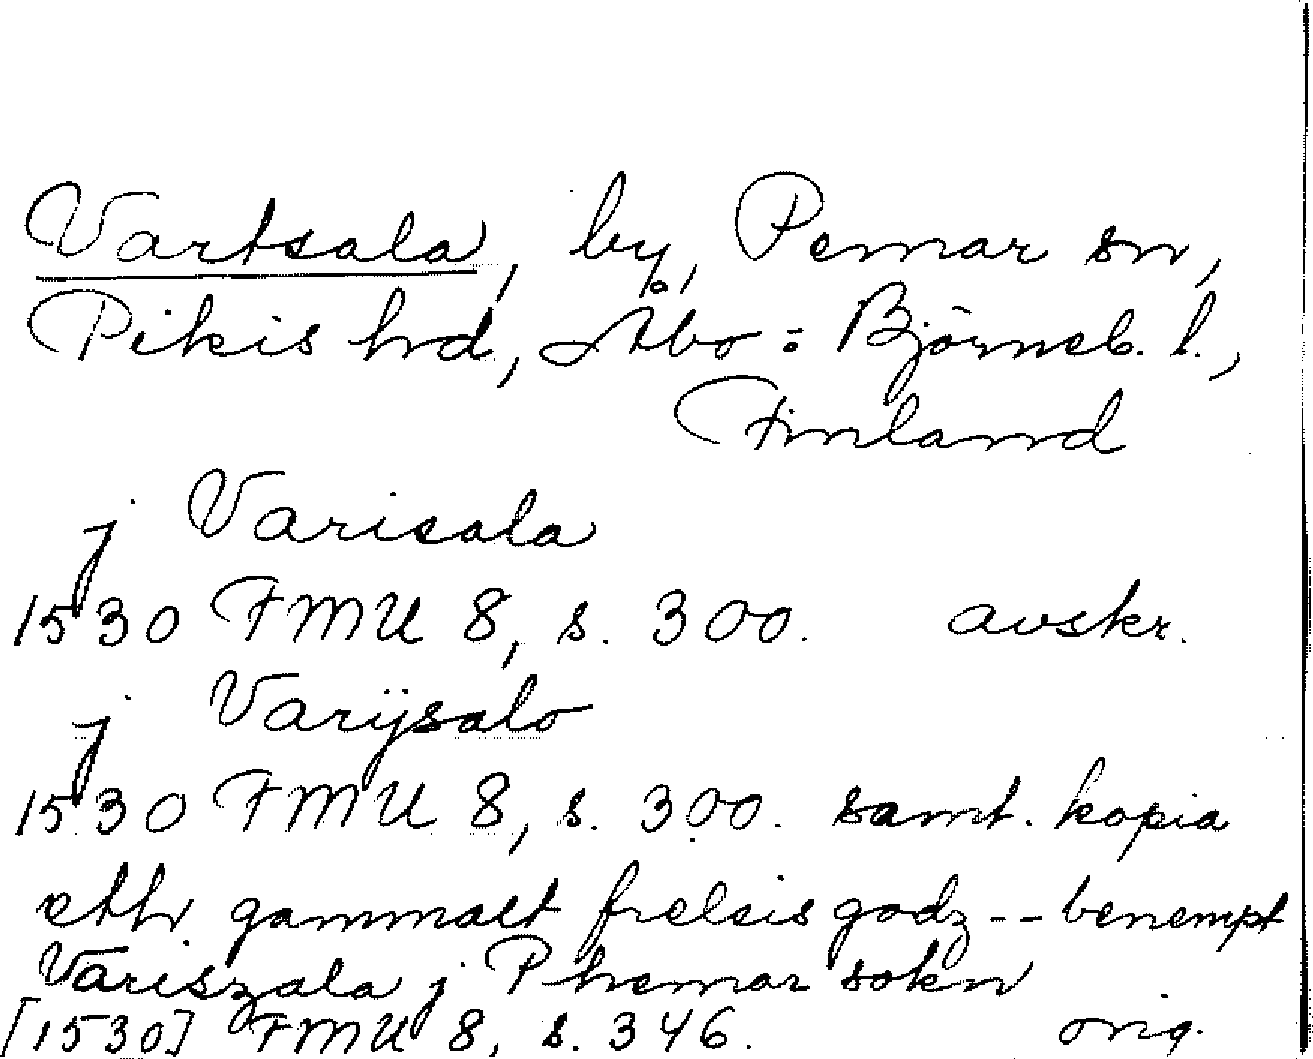 Vartsala, by, Pemar sn,
Pikis hrd, Åbo = Björneb. l.,
Finland
j Varisala
1530 FMU 8, s. 300. avskr.
j Varijsalo
1530 FMU 8, s. 300. samt. kopia
etth gammalt frelsis godz -- benempt
Variszala j Phemar sokn
[1530] FMU 8, s. 346. orig.